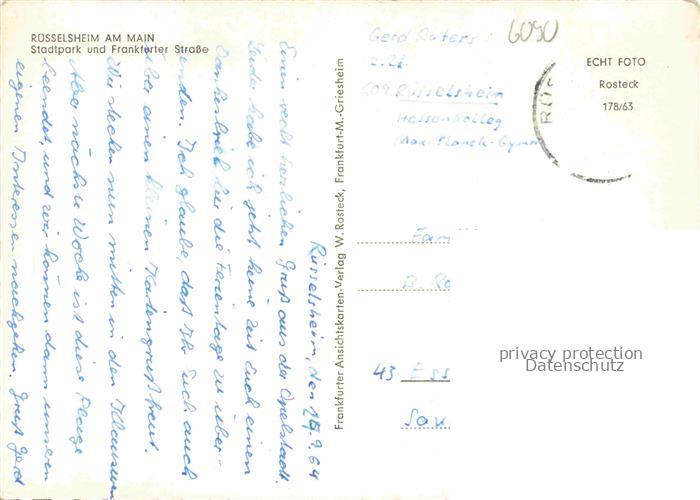 RÜSSELSHEIM AM MAIN
Stadtpark und Frankfurter Straße
Rüsselsheim, den 15.9.64
Einen recht herzlichen Gruß aus der Opelstadt.
Leider habe ich jetzt keine Zeit Euch einen
Dankesbrief für die Ferientage zu über-
senden. Ich glaube, daß Ihr Euch auch
über einen kleinen Kartengruß freut.
Wir stecken nun mitten in den Klausuren
Aber nächste Woche ist diese Plage
beendet, und wir können dann unseren
eigenen Interessen nachgehen. Gruß Gerd
Frankfurter Ansichtskarten-Verlag W. Rosteck, Frankfurt-M.-Griesheim
Gerd Raters
6090
z.Zt.
609 Rüsselsheim
Hessenkolleg
Max-Planck-Gymn
ECHT FOTO
Rosteck
178/63
RÜS
Fam
B. Ro
43 Ess
Sav
privacy protection
Datenschutz